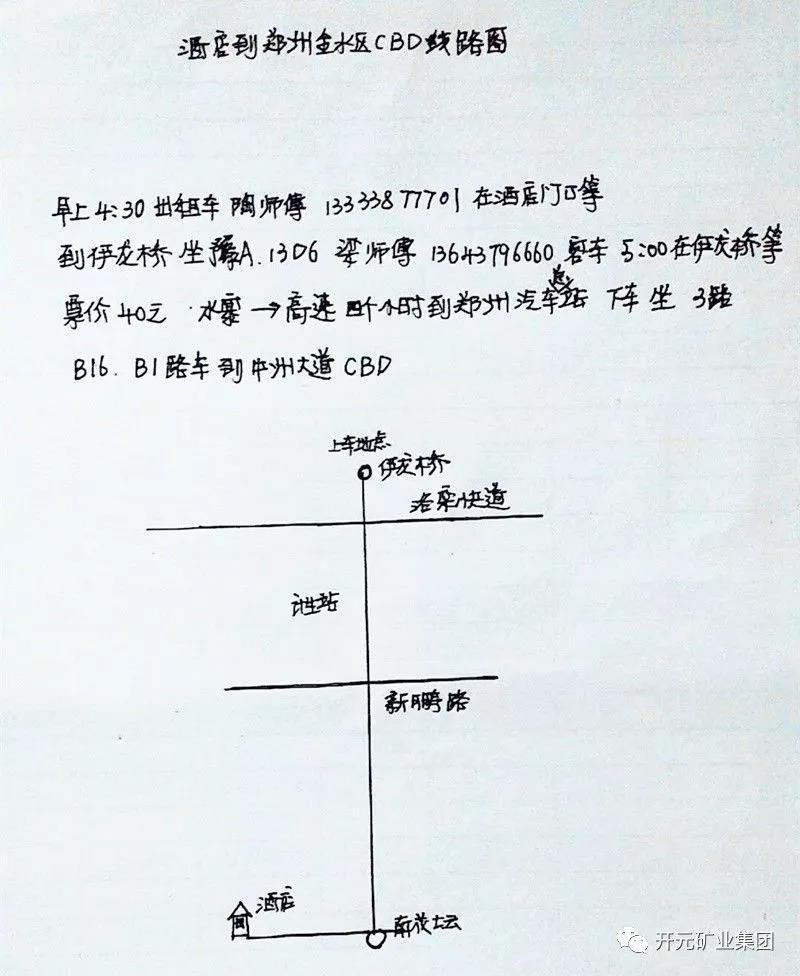 酒店到郑州金水区CBD线路图
早上4:30出租车 陶师傅 13333877701 在酒店门口等
到伊龙桥 坐豫A.13D6 梁师傅 13643796660 客车 5:00在伊龙桥等
票价40元 水栗→高速 四个小时到郑州汽车总站 下车坐 3路
B16. B1路车到中州大道CBD
上车地点
伊龙桥
洛栾快道
计生站
新鹏路
酒店
开元矿业集团